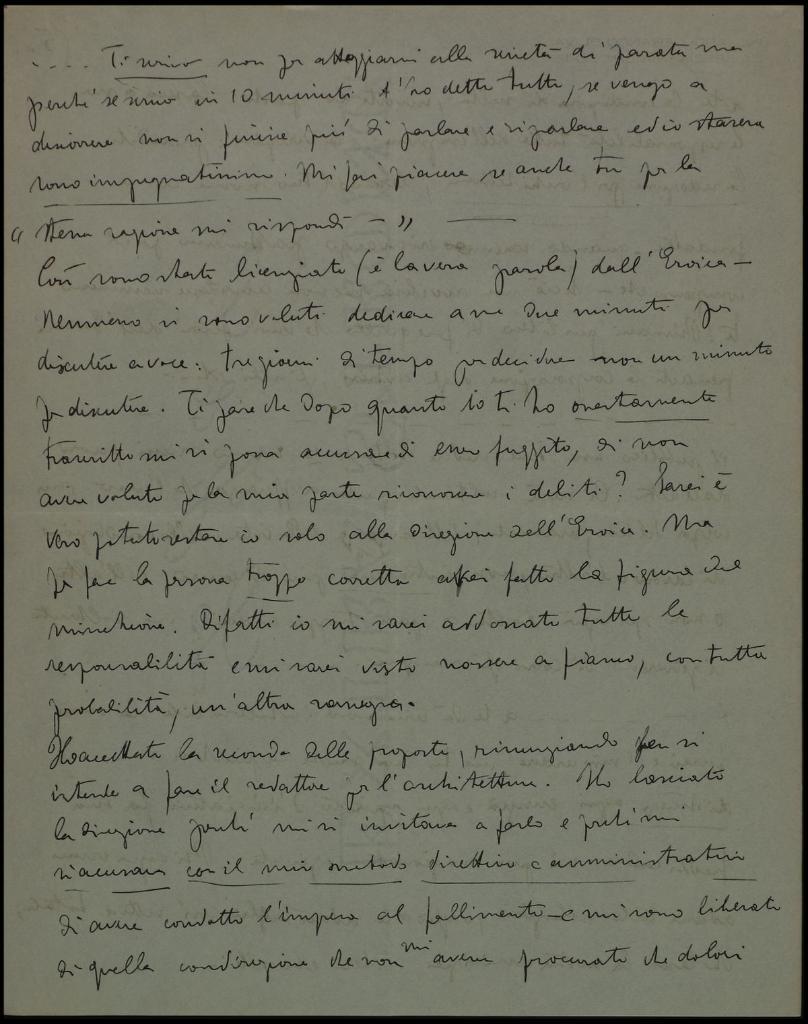 .... Ti scrivo non per atteggiarmi alla serietà di parata ma
perché se scrivo in 10 minuti t'ho detto tutto, se vengo a
discorrere non si finisce più di parlare e riparlare ed io stasera
sono impegnatissimo. Mi fai piacere se anche tu per la
" stessa ragione mi rispondi — " —
Così sono stato licenziato (è la vera parola) dall'Eroica —
Nemmeno si sono voluti dedicare a me due minuti per
discutere a voce: tre giorni di tempo per decidere non un minuto
per discutere. Ti pare che dopo quanto io ti ho onestamente
trascritto mi si possa accusare di esser fuggito, di non
aver voluto per la mia parte riconoscere i debiti? Sarei è
vero potuto restare io solo alla direzione dell'Eroica. Ma
per far la persona troppo corretta avrei fatto la figura del
minchione. Difatti io mi sarei addossato tutte le
responsabilità e mi sarei visto nascere a fianco, con tutta
probabilità, un'altra rassegna.
Ho accettato la seconda delle proposte, rinunziando ben si
intende a fare il redattore per l'architettura. Ho lasciato
la direzione perché mi si invitava a farlo e perché mi
si accusava con il mio metodo direttivo e amministrativo
di avere condotto l'impresa al fallimento — e mi sono liberato
di quella condirezione che non mi aveva procurato che dolori